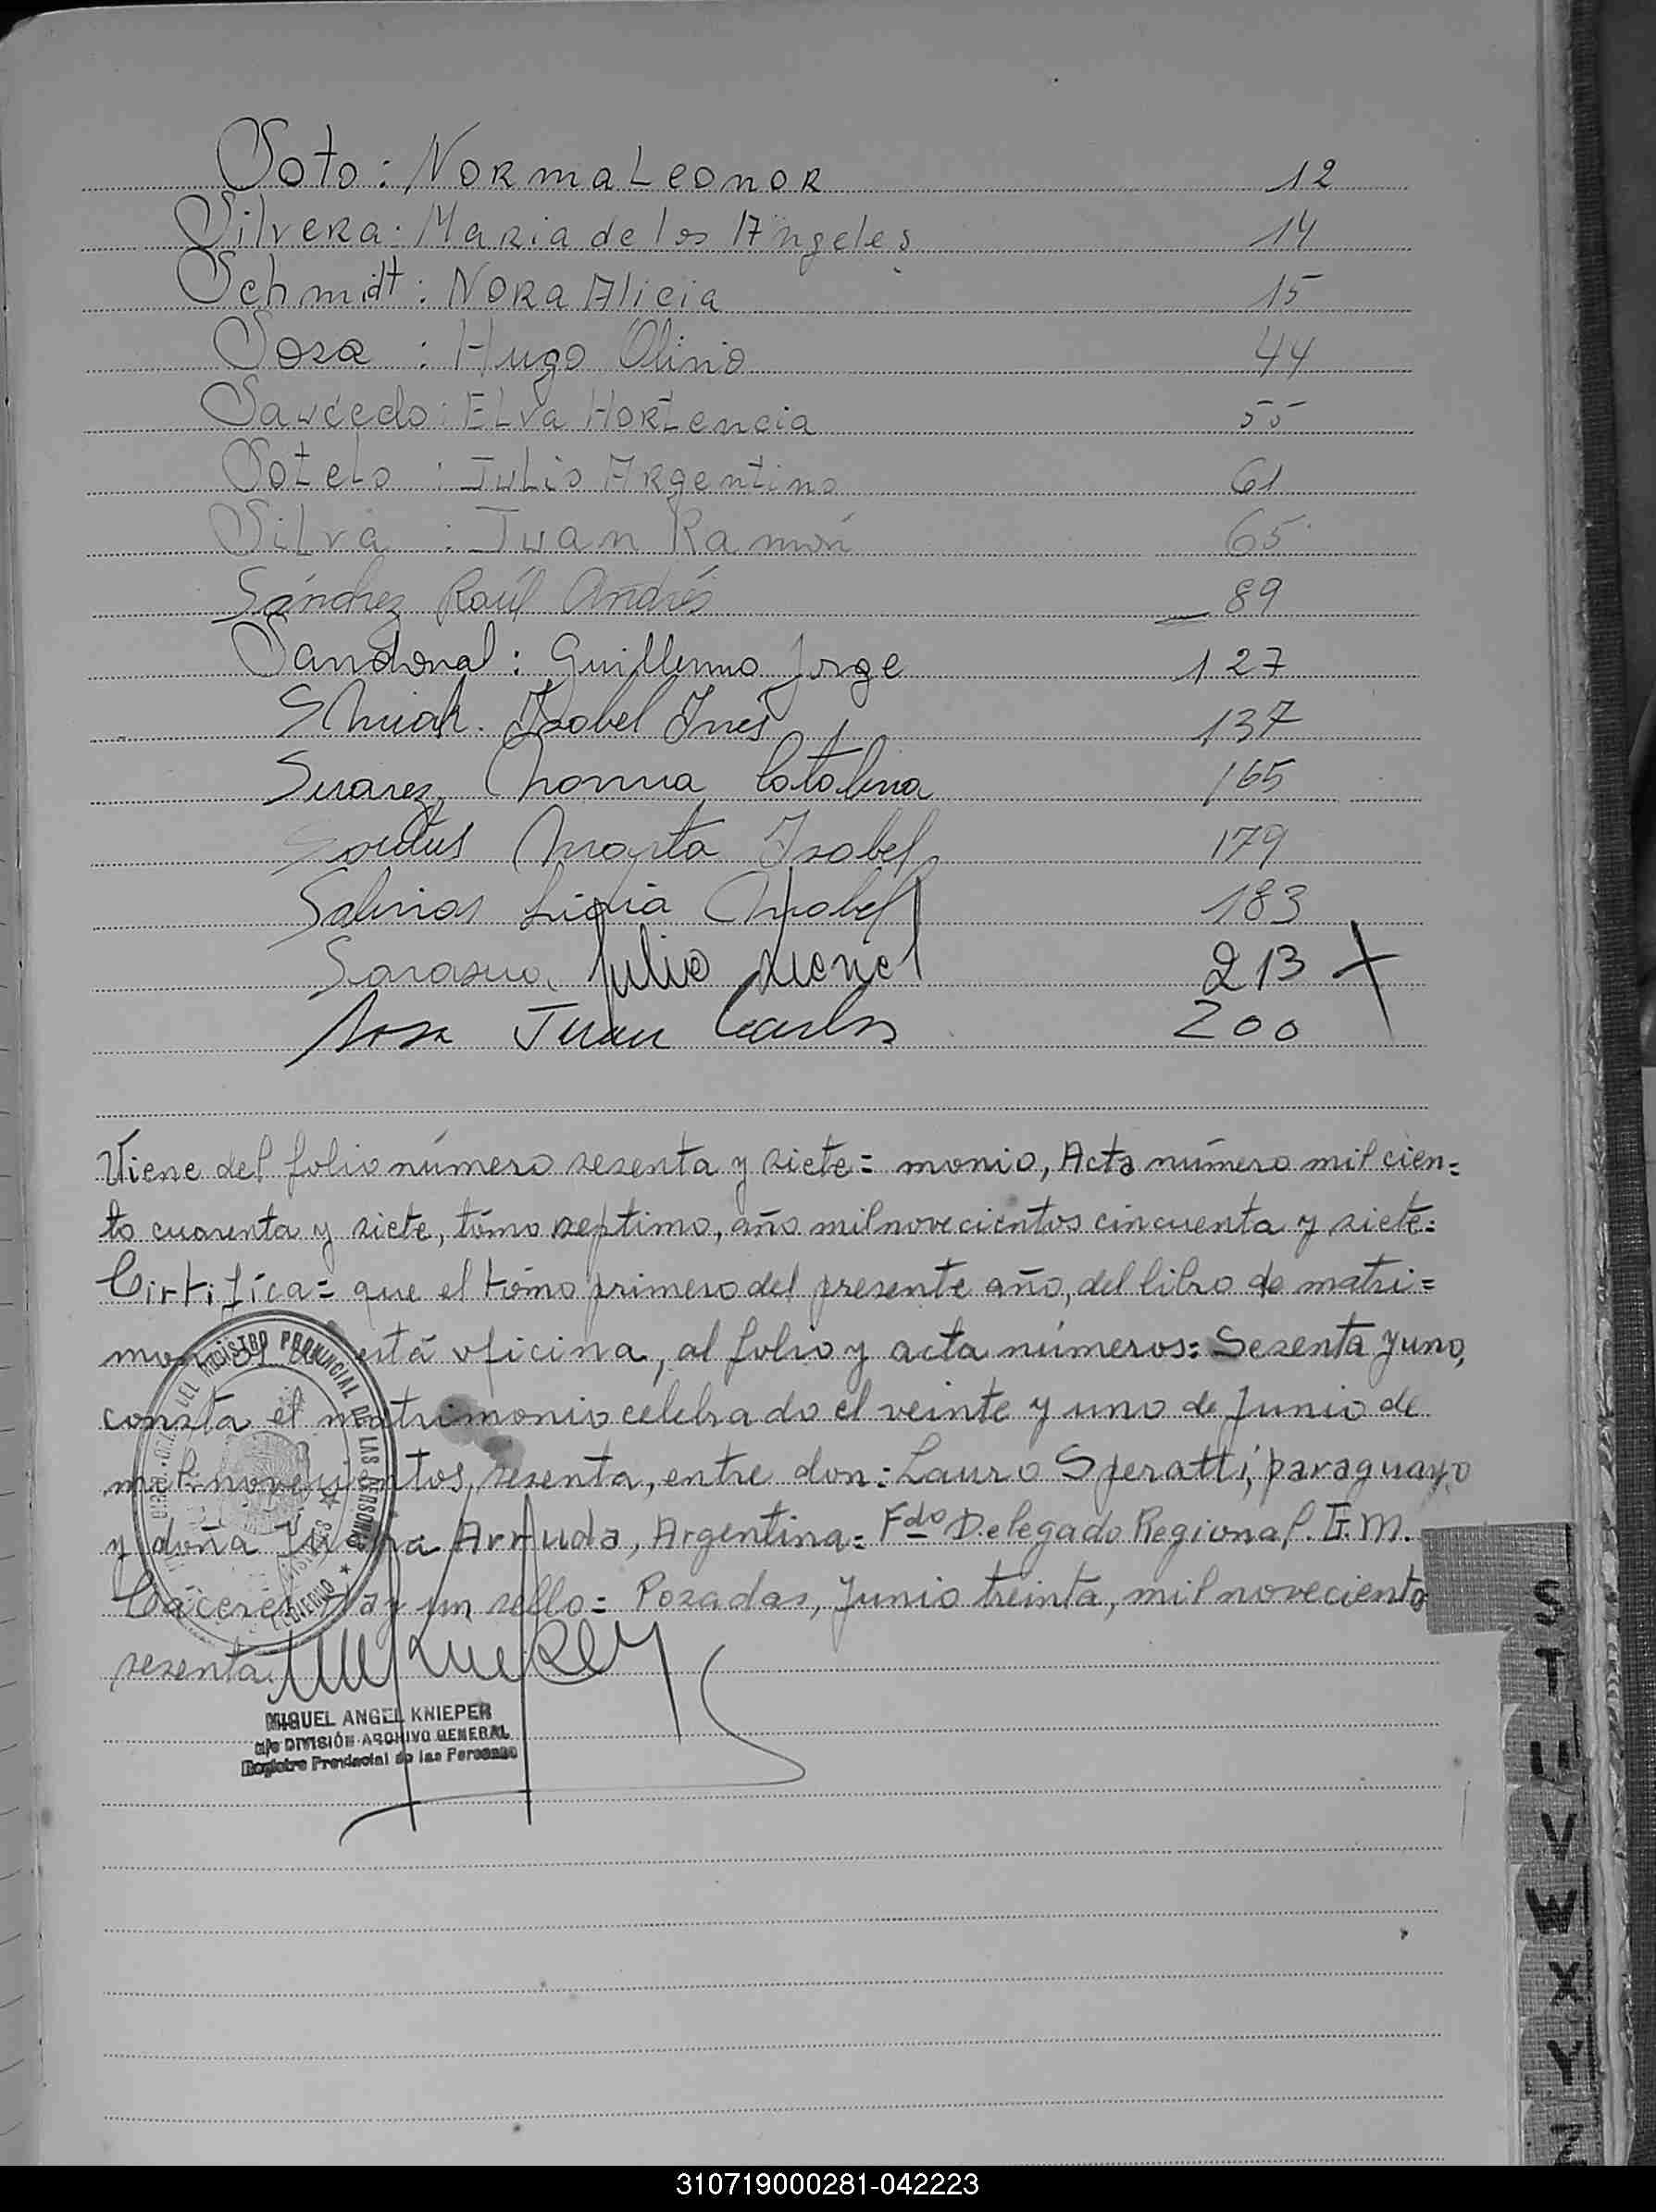 Soto: Norma Leonor 12
Silvera: Maria de los Angeles 14
Schmidt: Nora Alicia 15
Sosa : Hugo Olirio 44
Saucedo: Elva Hortencia 55
Sotelo : Julio Argentino 61
Silva : Juan Ramón 65
Sánchez Raúl Andrés 89
Sandoval: Guillermo Jorge 127
Isabel Ines 137
Suarez, Norma Catalina 165
Marta Isabel 179
Salinas Ligia Mabel 183
Sarasua Julio Lionel 213 X
Sosa Juan Carlos 200
Viene del folio número sesenta y siete= monio, Acta número mil cien=
to cuarenta y siete, tómo septimo, año mil novecientos cincuenta y siete=
Cirtifica= que el tómo primero del presente año, del libro de matri=
está oficina, al folio y acta números: Sesenta y uno,
consta el matrimonio celebrado el veinte y uno de Junio de
mil novecientos sesenta, entre don: Lauro Speratti, paraguayo
y doña Arruda, Argentina= Fdo Delegado Regional. E. M.
Caceres Hay un sello= Posadas, Junio treinta, mil noveciento
sesenta
DEL REGISTRO PROVINCIAL DE LAS PERSONAS
MIGUEL ANGEL KNIEPER
a/c DIVISIÓN ARCHIVO GENERAL
Registro Provincial de las Personas
S
T
U
V
W
X
Y
Z
310719000281-042223